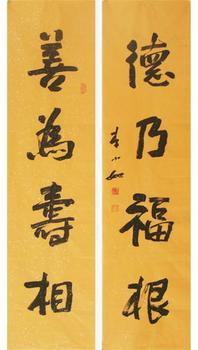 德乃福根
善為壽相